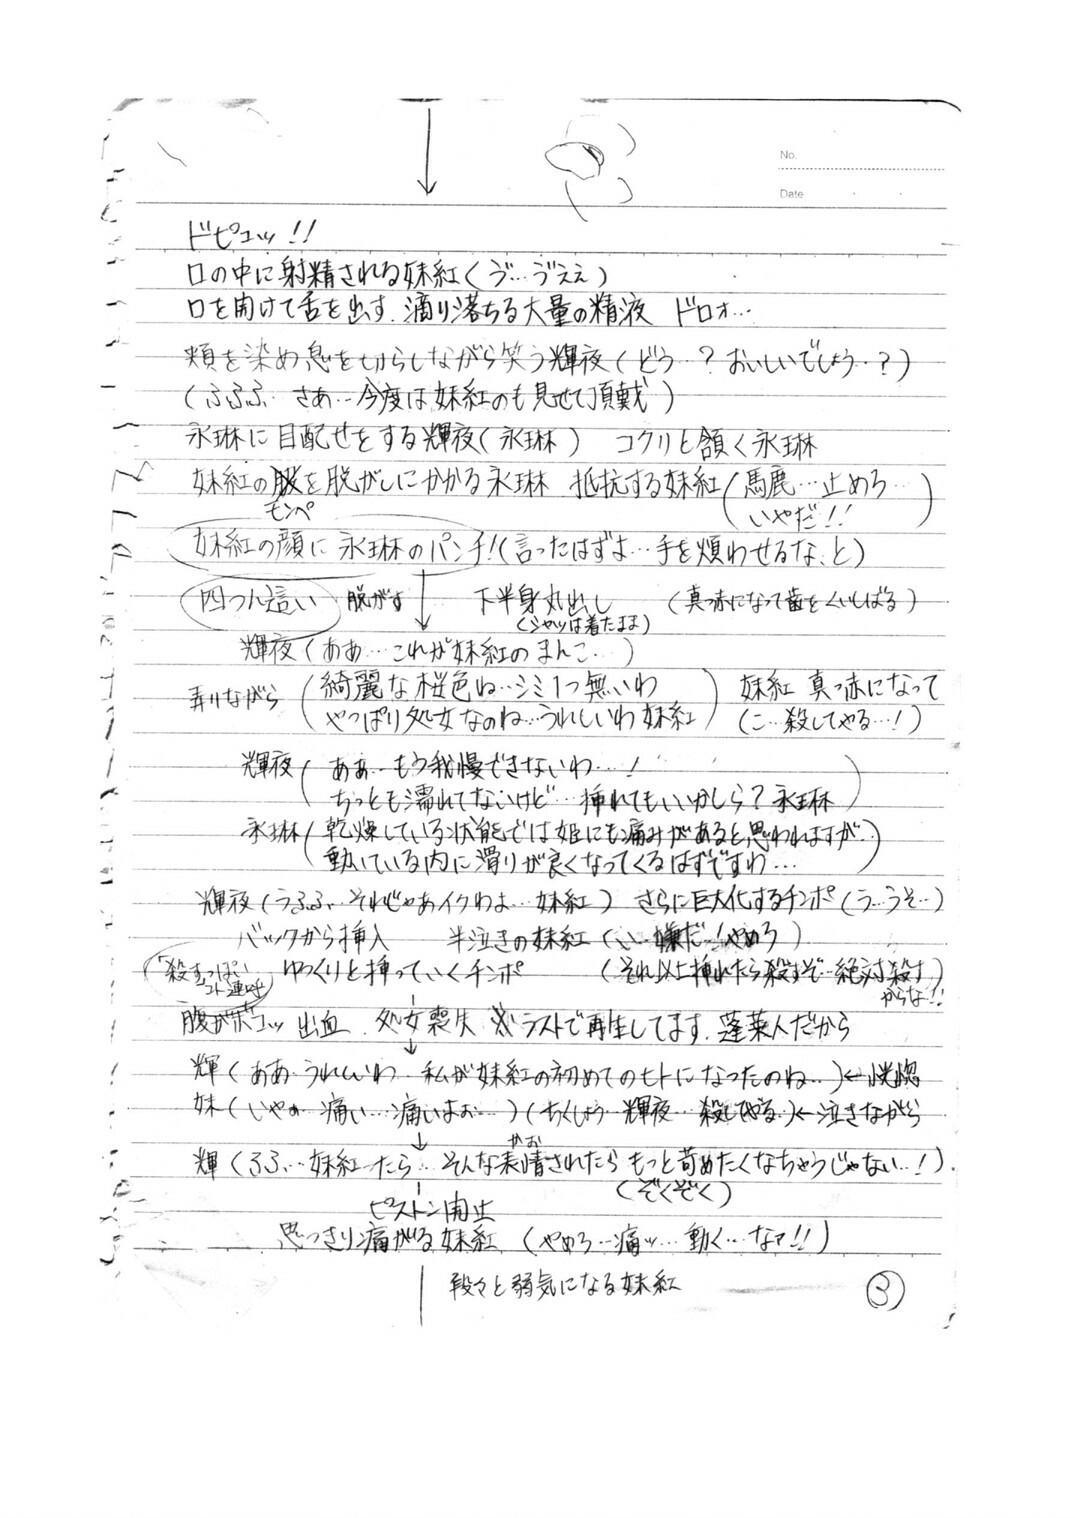 No.
Date
ドピュッ!!
口の中に射精される妹紅(ゔ…ゔええ)
口を開けて舌を出す.滴り落ちる大量の精液 ドロォ…
頬を染め息を切らしながら笑う輝夜(どう…?おいしいでしょう…?)
(ふふふ…さあ…今度は妹紅のも見せて頂戴)
永琳に目配せをする輝夜(永琳) コクリと頷く永琳
妹紅の服を脱がしにかかる永琳 抵抗する妹紅(馬鹿…止めろ…
モンペ いやだ!!)
妹紅の顔に永琳のパンチ!(言ったはずよ…手を煩わせるな、と)
四つん這い 脱がす 下半身丸出し (真っ赤になって歯をくいしばる)
(シャツは着たまま)
輝夜(ああ…これが妹紅のまんこ…)
弄りながら (綺麗な桜色ね…シミ1つ無いわ 妹紅 真っ赤になって
やっぱり処女なのね…うれしいわ妹紅) (こ…殺してやる…!)
輝夜(ああ…もう我慢できないわ…!
ちっとも濡れてないけど…挿れてもいいかしら?永琳)
永琳(乾燥している状態では姫にも痛みがあると思われますが…
動いている内に滑りが良くなってくるはずですわ…)
輝夜(うふふ…それじゃあイクわよ…妹紅) さらに巨大化するチンポ(う…うそ…)
バックから挿入 半泣きの妹紅(い…嫌だ!やめろ)
「殺すっぽい ゆっくりと挿っていくチンポ (それ以上挿れたら殺すぞ…絶対殺す
コト連呼 からな!!)
腹がボコッ 出血 処女喪失 ※ラストで再生してます.蓬莱人だから
輝(ああ…うれしいわ…私が妹紅の初めてのヒトになったのね…)←恍惚
妹(いやぁ…痛い…痛いよお…)(ちくしょう…輝夜…殺してやる…)←泣きながら
かお
輝(ふふ…妹紅ったら…そんな表情されたらもっと苛めたくなちゃうじゃない…!)
(ぞくぞく)
ピストン開始
思っきり痛がる妹紅 (やめろ…痛ッ…動く…なァ!!)
段々と弱気になる妹紅
3